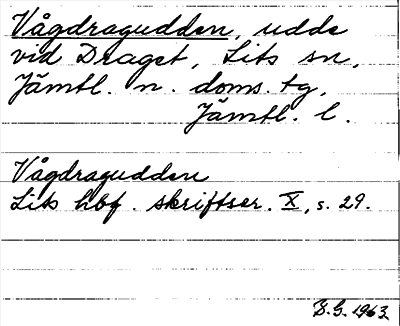 Vågdragudden, udde
vid Draget, Lits sn,
Jämtl. n. doms. tg,
Jämtl. l.
Vågdragudden
Lits hbf. skriftser. X, s. 29.
B.G. 1963